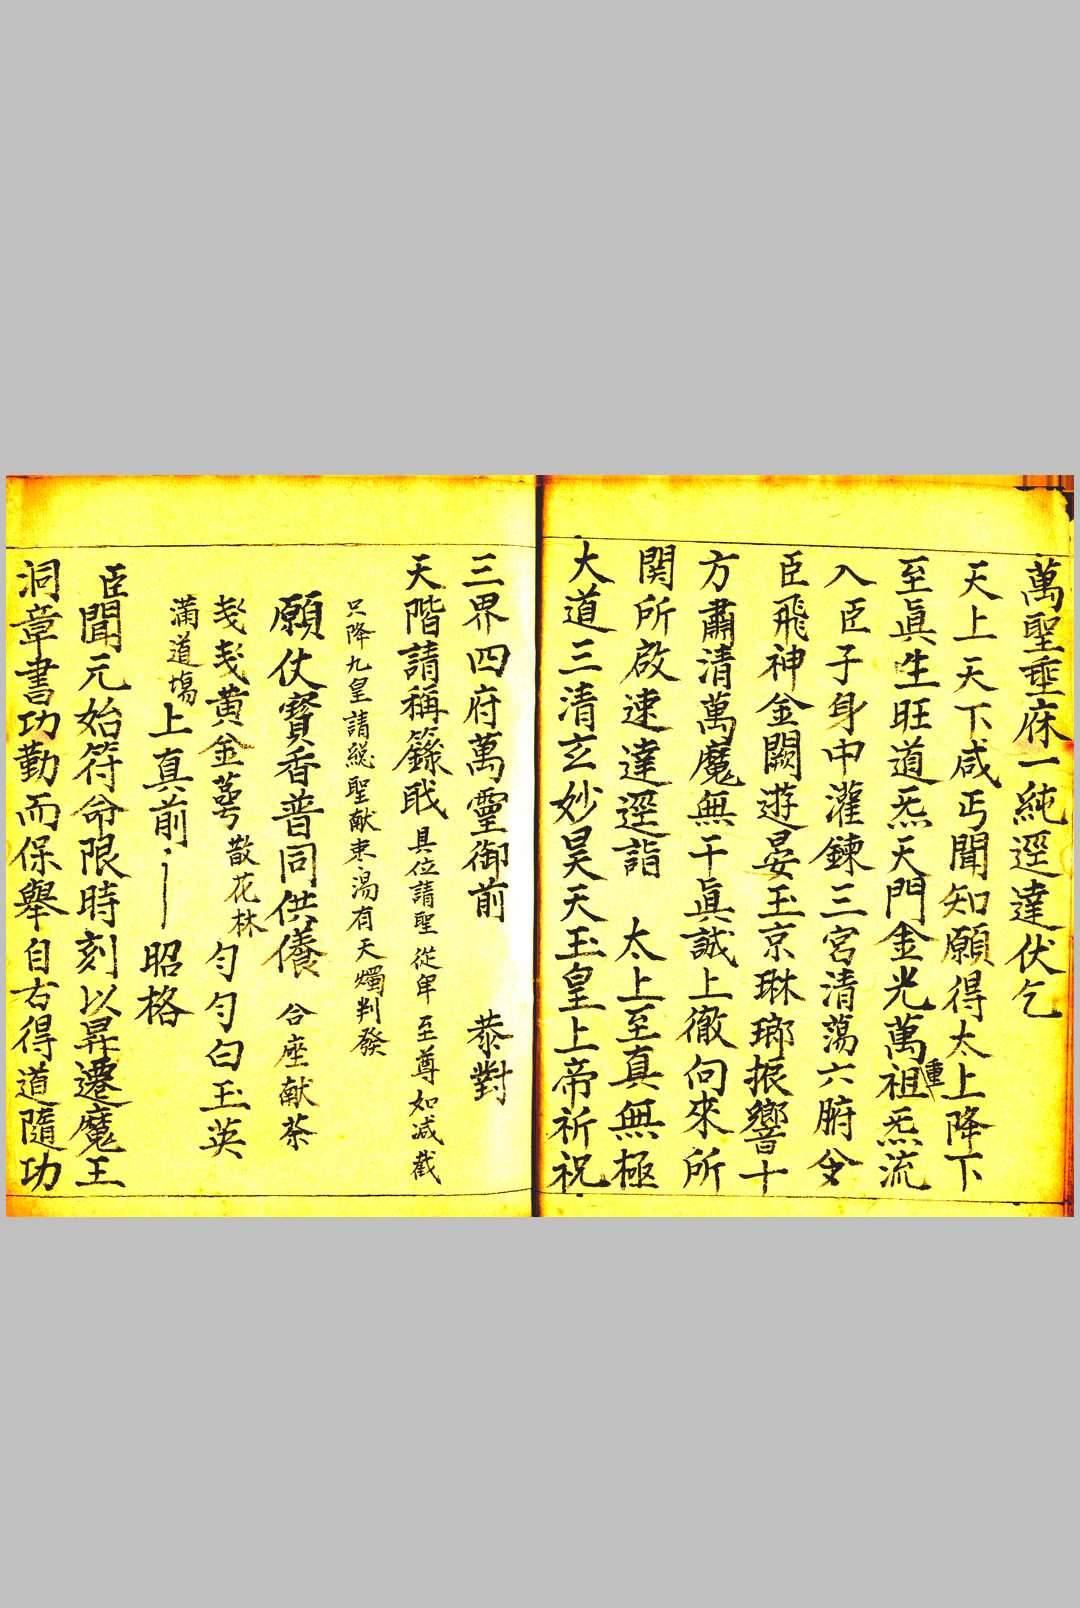 萬聖垂庥一純逕達伏乞
天上天下咸丐聞知願得太上降下
至眞生旺道炁天門金光萬重祖炁流
入臣子身中灌鍊三宮清蕩六腑令
臣飛神金闕遊晏玉京琳瑯振響十
方肅清萬魔無干眞誠上徹向來所
関所啟速達逕詣　太上至真無極
大道三清玄妙昊天玉皇上帝祈祝
三界四府萬靈御前　恭對
天階請稱籙戢具位請聖從卑至尊如減截
只降九皇請総聖献枣湯有天燭判發
願仗寳香普同供養　合座献茶
戔戔黄金萼散花林　勻勻白玉英
滿道塲上真前　昭格
臣聞元始符命限時刻以昇遷魔王
洞章書功勤而保舉自右得道隨功